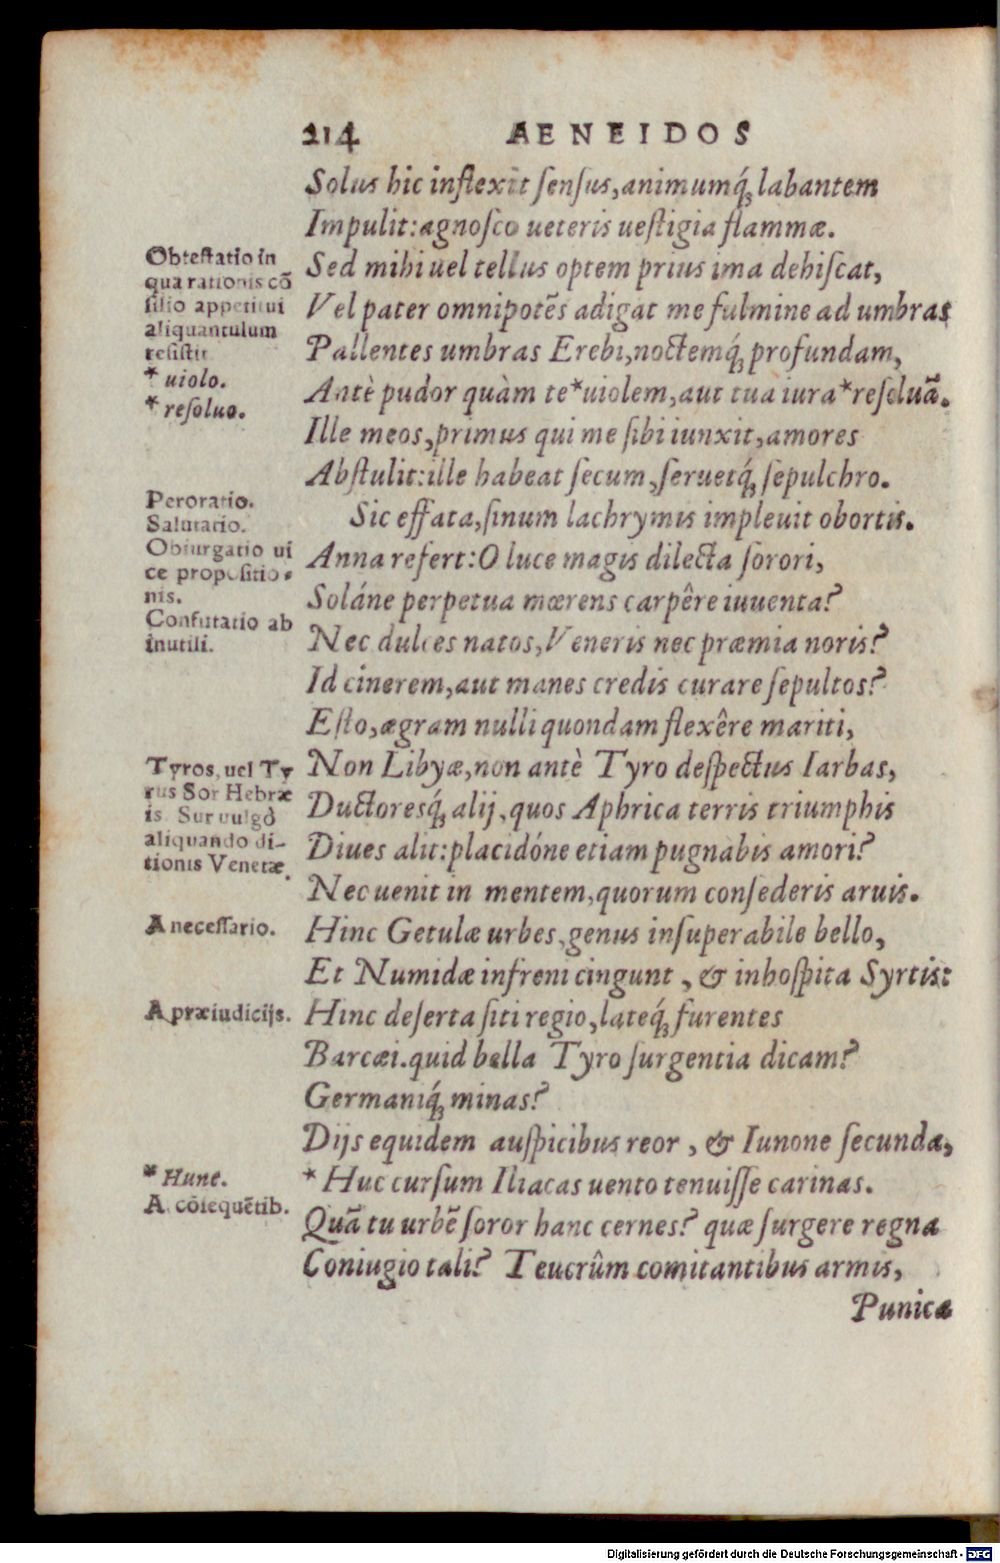 214 AENEIDOS
Solus hic inflexit sensus, animumq́; labantem
Impulit: agnosco ueteris uestigia flammæ.
Sed mihi uel tellus optem prius ima dehiscat,
Vel pater omnipotēs adigat me fulmine ad umbras
Pallentes umbras Erebi, noctemq́; profundam,
Antè pudor quàm te *uiolem, aut tua iura *resoluā.
Ille meos, primus qui me sibi iunxit, amores
Abstulit: ille habeat secum, seruetq́; sepulchro.
Sic effata, sinum lachrymis impleuit obortis.
Anna refert: O luce magis dilecta sorori,
Soláne perpetua mœrens carpêre iuuenta?
Nec dulces natos, Veneris nec præmia noris?
Id cinerem, aut manes credis curare sepultos?
Esto, ægram nulli quondam flexêre mariti,
Non Libyæ, non antè Tyro despectus Iarbas,
Ductoresq́; alij, quos Aphrica terris triumphis
Diues alit: placidóne etiam pugnabis amori?
Nec uenit in mentem, quorum consederis aruis.
Hinc Getulæ urbes, genus insuperabile bello,
Et Numidæ infreni cingunt, & inhospita Syrtis:
Hinc deserta siti regio, lateq́; furentes
Barcæi. quid bella Tyro surgentia dicam?
Germaniq́; minas?
Dijs equidem auspicibus reor, & Iunone secunda,
* Huc cursum Iliacas uento tenuisse carinas.
Quā tu urbē soror hanc cernes? quæ surgere regna
Coniugio tali? Teucrûm comitantibus armis,
Punica
Obtestatio in
qua rationis cō
silio appetitui
aliquantulum
resistit
* uiolo.
* resoluo.
Peroratio.
Salutatio.
Obiurgatio ui
ce propositio-
nis.
Confutatio ab
inutili.
Tyros, uel Ty
rus Sor Hebræ
is. Sur uulgò
aliquando di-
tionis Venetæ.
A necessario.
A præiudicijs.
* Hunc.
A cōsequētib.
Digitalisierung gefördert durch die Deutsche Forschungsgemeinschaft - DFG